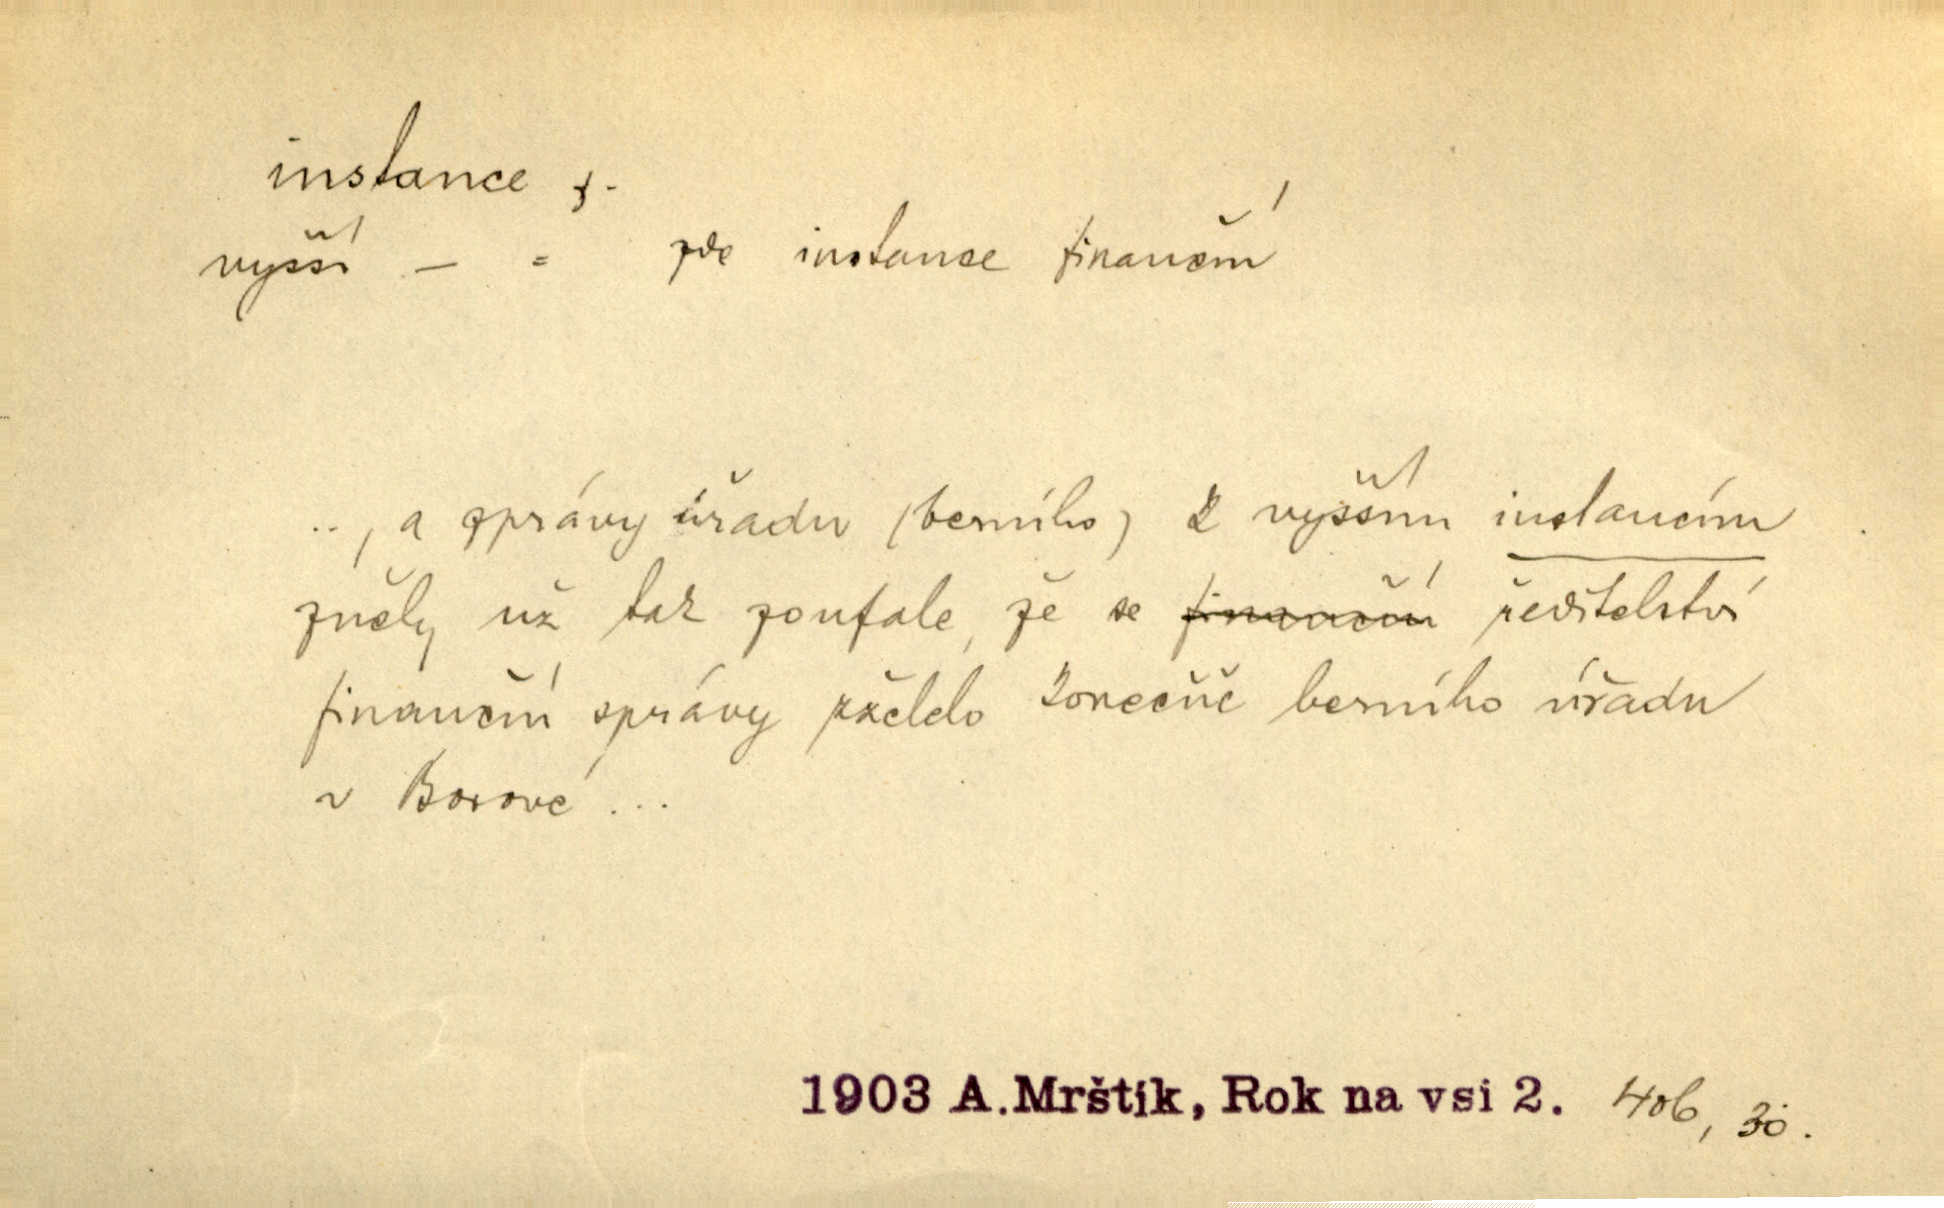 instance f.
vyšší — = zde instance finanční
.., a zprávy úřadu (berního) k vyšším instancím
zněly už tak zoufale, že se finanční ředitelství
finanční správy zželelo konečně berního úřadu
v Borové ...
1903 A. Mrštík, Rok na vsi 2. 406, 30.